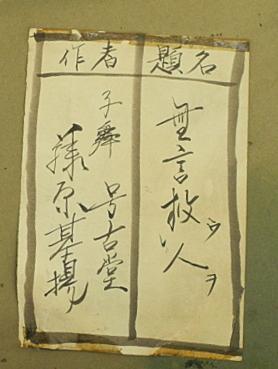 題名
無言救ウ人ヲ
作者
子舜 号古堂
原基揚